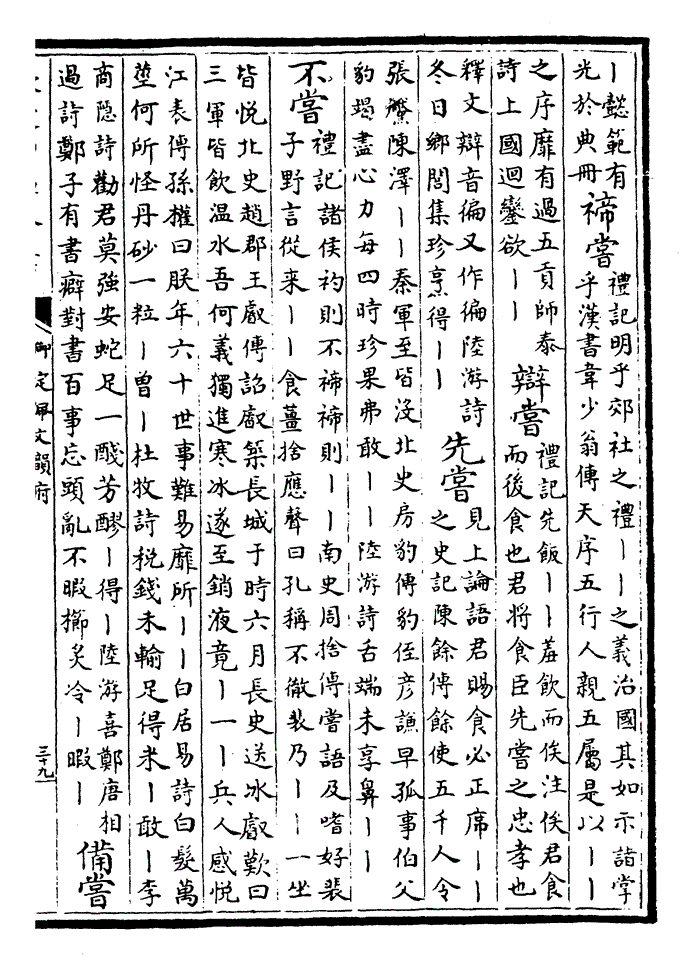 ｜懿範有
光於典冊
禘嘗
禮記明乎郊社之禮｜｜之義治國其如示諸掌
乎漢書韋少翁傳天序五行人親五屬是以｜｜
之序靡有過五貢師泰
詩上國迴鑾欲｜｜
辯嘗
禮記先飯｜｜羞飲而俟注俟君食
而後食也君將食臣先嘗之忠孝也
釋文辯音徧又作徧陸游詩
冬日鄉閭集珍烹得｜｜
先嘗
見上論語君賜食必正席｜｜
之史記陳餘傳餘使五千人令
張黶陳澤｜｜秦軍至皆沒北史房豹傳豹侄彥謙早孤事伯父
豹竭盡心力每四時珍果弗敢｜｜陸游詩舌端未享鼻｜｜
不嘗
禮記諸侯礿則不禘禘則｜｜南史周捨傳嘗語及嗜好裴
子野言從来｜｜食薑捨應聲曰孔稱不徹裴乃｜｜一坐
皆悅北史趙郡王叡傳詔叡築長城于時六月長史送冰叡歎曰
三軍皆飲温水吾何義獨進寒冰遂至銷液竟｜一｜兵人感悅
江表傳孫權曰朕年六十世事難易靡所｜｜白居易詩白髮萬
莖何所怪丹砂一粒｜曾｜杜牧詩税錢未輸足得米｜敢｜李
商隱詩勸君莫強安蛇足一醆芳醪｜得｜陸游喜鄭唐相
過詩鄭子有書癖對書百事忘頭亂不暇櫛炙冷｜暇｜
備嘗
御定佩文韻府
三十九